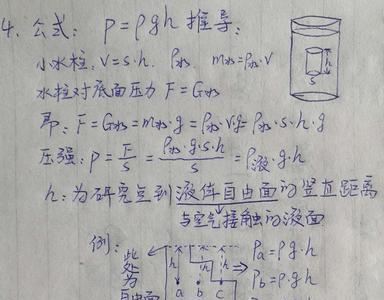 4. 公式: P=ρgh 推导:
小水柱: V=s·h. ρ水. m水=ρ水·V
h
s
水柱对底面压力 F=G水
即: F=G水=m水·g=ρ水·V·g=ρ水·s·h·g
压强: P=F/S=ρ水·g·s·h/S=ρ液·g·h
h: 为研究点到液体自由面的竖直距离
与空气接触的液面
例:
此处为自由面
h h h
a b c
Pa=ρg·h
Pb=ρ·g·h